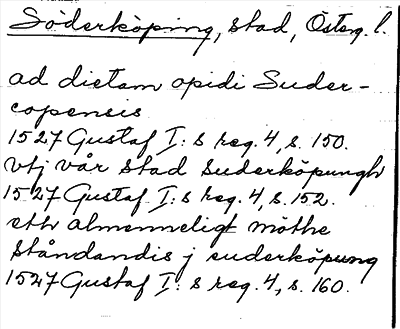 Söderköping, stad, Österg. l.
ad dietam opidi Suder-
copensis
1527 Gustaf I:s reg. 4, s. 150.
vtj vår stad Suderköpungh
1527 Gustaf I:s reg. 4, s. 152.
eth almenneligt möthe
ståndandis j suderköpung
1527 Gustaf I:s reg. 4, s. 160.